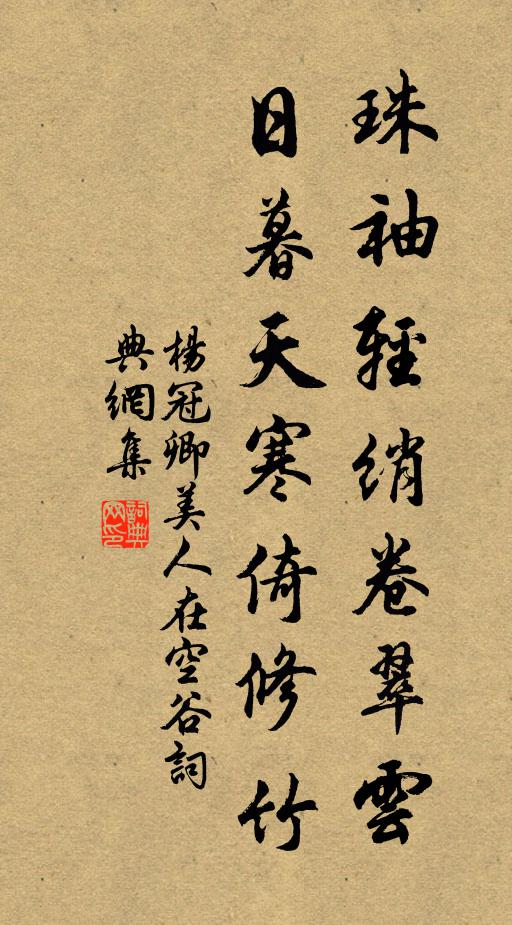 珠袖輕綃卷翠雲
日暮天寒倚修竹
楊冠卿美人在空谷詞
典網集
詞典網印